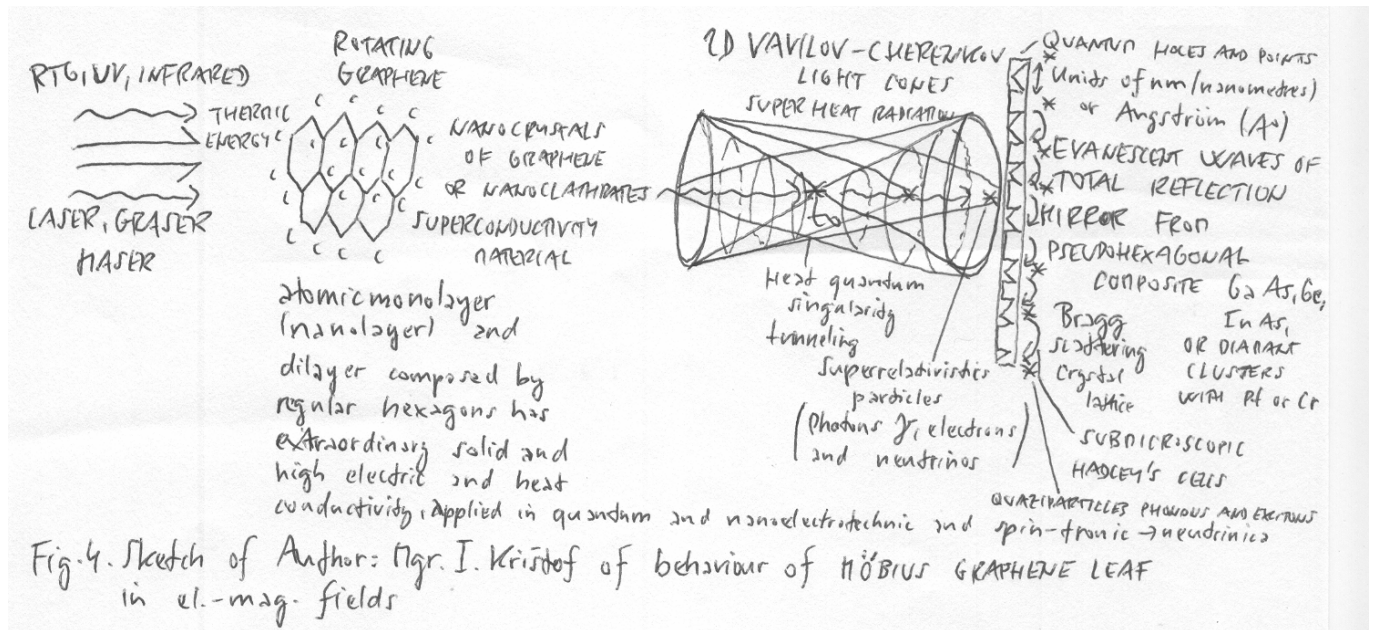 RTG, UV, INFRARED
THERMIC
ENERGY
LASER, GRASER
MASER
ROTATING
GRAPHENE
C C C C
C C C C C
C C C C C
C C C C
NANOCRYSTALS
OF GRAPHENE
OR NANOCLATHRATES
SUPERCONDUCTIVITY
MATERIAL
atomic monolayer
(nanolayer) and
dilayer composed by
regular hexagons has
extraordinary solid and
high electric and heat
conductivity, applied in quantum and nanoelectrotechnic and spin-tronic → neutrinics
2D VAVILOV-CHERENKOV
LIGHT CONES
SUPER HEAT RADIATION
t₀
Heat quantum
singularity
tunneling
Superrelativistics
particles
(Photons γ, electrons)
and neutrinos
QUANTUM HOLES AND POINTS
Units of nm (nanometres)
or Angström (A°)
EVANESCENT WAVES OF
TOTAL REFLECTION
MIRROR FROM
PSEUDOHEXAGONAL
COMPOSITE GaAs, Ge,
InAs,
OR DIAMANT
CLUSTERS
WITH Pt or Cr
Bragg
scattering
Crystal
lattice
SUBMICROSCOPIC
HADLEY'S CELLS
QUAZIPARTICLES PHONONS AND EXCITONS
Fig. 4. Sketch of Author: Mgr. I. Krištof of behaviour of MÖBIUS GRAPHENE LEAF
in el.-mag. fields